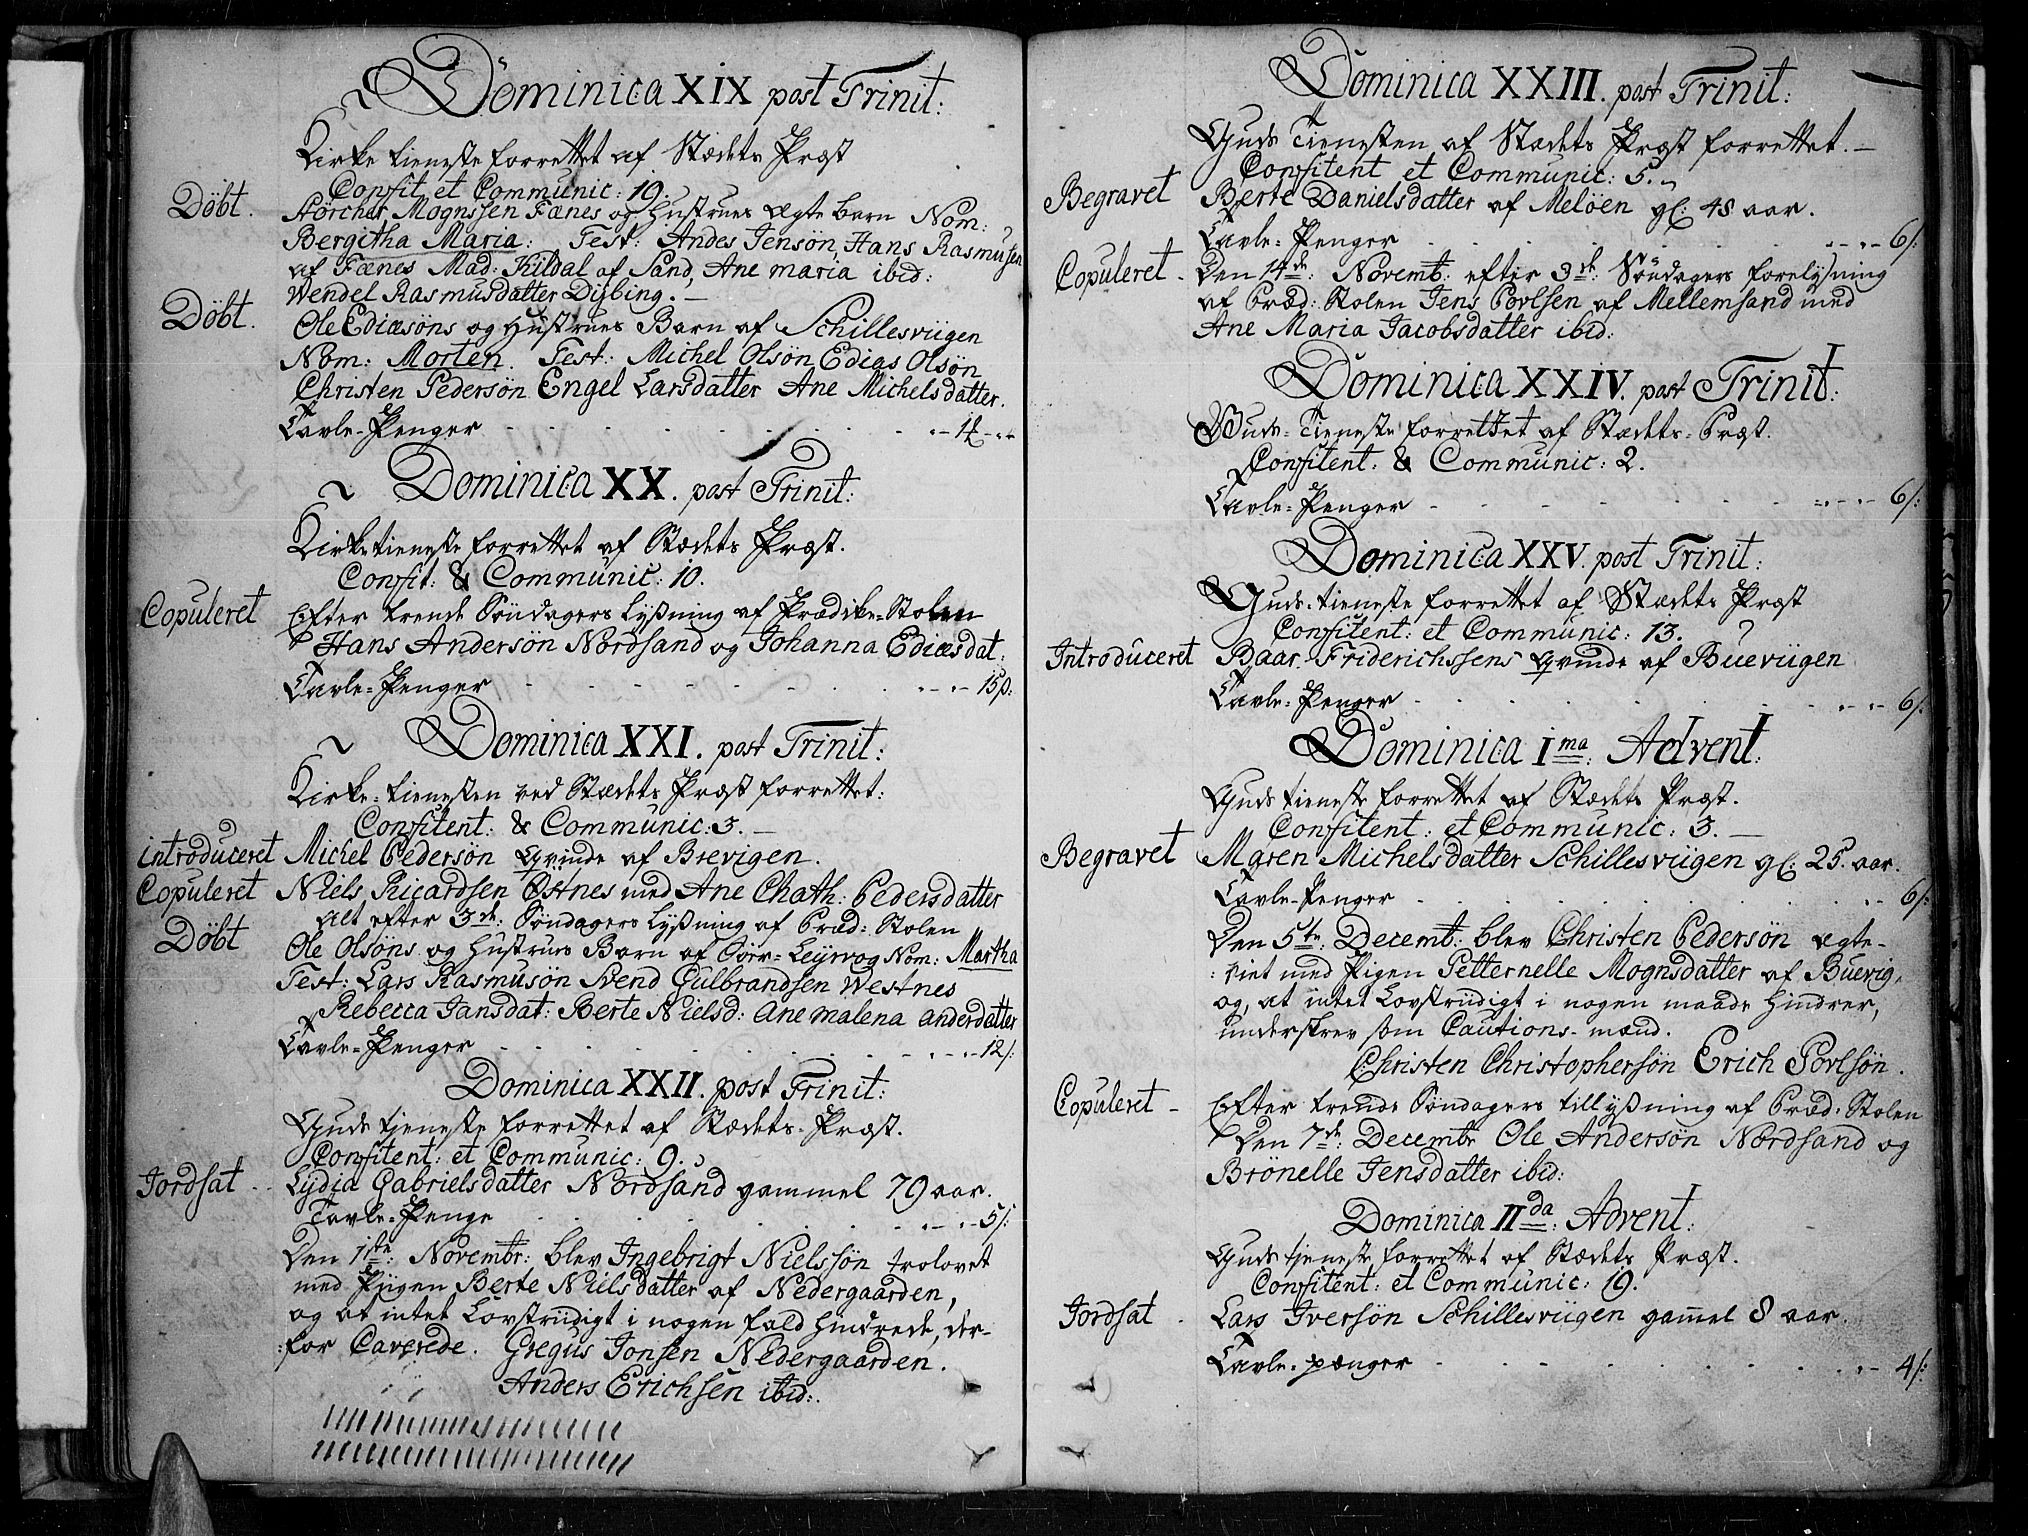 Dominica XIX post Trinit:
Kirke tieneste forrettet af Stædets Præst
Confit et Communic: 19.
Döbt. Störcher Mognssen Fænes og Hustrues ægte barn Nom:
Bergitha Maria: Test: Andes Jensön, Hans Rasmusen
af Fænes Mad: Kildal af Sand, Ane maria ibid:
Wendel Rasmusdatter Dybing. –
Döbt. Ole Ediæsöns og Hustrues Barn af Schillesviigen
Nom: Morten. Test: Michel Olsön Edias Olsön
Christen Pedersön Engel Larsdatter Ane Michelsdatter.
Tavle-Penger
Dominica XX. post Trinit:
Kirketieneste forrettet af Stædets Præst.
Confit: & Communic: 10.
Copuleret Efter trende Söndagers lysning af Prædike-Stolen
Hans Andersön Nordsand og Johanna Ediæsdat:
Tavle-Penger 15
Dominica XXI. post Trinit:
Kirke-tienesten ved Stædets Præst forrettet:
Confitent: & Communic: 3. –
introduceret Michel Pedersön Qvinde af Brevigen.
Copuleret Niels Ricardsen Östnes med Ane Chath: Pedersdatter
alt efter 3de: Söndagers lysning af Præd: Stolen
Döbt Ole Olsöns og Hustrues Barn af Törr-Leyrvog Nom: Martha
Test: Lars Rasmusön Svend Gulbrandsen Westnes
Rebecca Jansdat: Berte Nielsd: Ane malena anderdatter
Tavle-Penger 12
Dominica XXII. post Trinit:
Guds tjeneste forrettet af Stædets-Præst.
Confitent: et Communic: 9.
Jordsat Lydia Gabrielsdatter Nordsand gammel 79 aar.
Tavle-Penge 5
Den 1ste: Novembr: blev Ingebrigt Nielssön trolovet
med Piigen Berte Nielsdatter af Nedergaarden,
og at intet Lovstrüdigt i nogen fald hindrede, der-
:for Caverede. Gregus Jonsen Nedergaarden.
Anders Erichsen ibid:.
Dominica XXIII. post Trinit:
Guds Tienesten af Stædets Præst forrettet. –
Confitent et Communic: 5.
Begravet Berte Danielsdatter af Melöen gl: 48 aar.
Tavle-Penger 6
Copuleret. Den 14de: Novemb: efter 3de: Söndagers forelysning
af Præd: Stolen Jens Povlsen af Mellemsand med
Ane Maria Jacobsdatter ibid:
Dominica XXIV. post Trinit:
Guds-Tieneste forrettet af Stædets-Præst.
Confitent: & Communic: 2.
Tavle-Penger 6
Dominica XXV. post Trinit:
Guds-tieneste forrettet af Stædets Præst
Confitent: et Communic: 13.
Introduceret Baar Friderichssens Qvinde af Bueviigen
Tavle-Penger 6
Dominica Ima: Advent:
Guds tieneste forrettet af Stædets Præst.
Confitent: et Communic: 3. –
Begravet Maren Michelsdatter Schillesviigen gl: 25. aar.
Tavle-Penger 6
Den 5te: Decemb: blev Christen Pedersön ægte-
:viet med Pigen Petternelle Mognsdatter af Buevig,
og, at intet Lovstrüdigt i nogen maade hindrer,
underskrev som Cautions-mænd.
Christen Christophersön Erich Povlsön.
Copuleret – Efter trende Söndagers tillysning af Præd: Stolen
Den 7de: Decembr Ole Andersön Nordsand og
Brönelle Jensdatter ibid:
Dominica IIda: Advent:
Guds tjeneste forrettet af Stædets Præst.
Confitent: et Communic: 19.
Jordsat Lars Iversön Schillesviigen gam̄el 8 aar.
Tavle-pænger 4